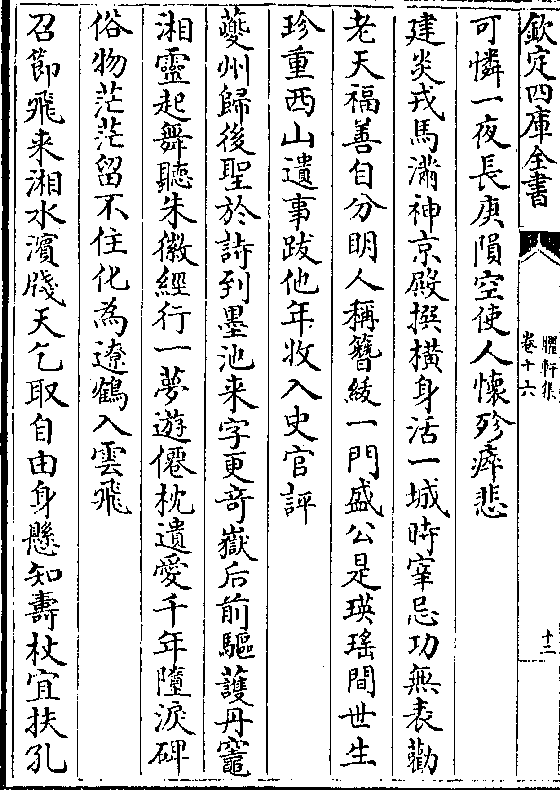 欽定四庫全書
臞軒集
卷十六
十三
可憐一夜長庚隕空使人懷殄瘁悲
建炎戎馬滿神京殿撰橫身活一城時宰忌功無表勸
老天福善自分明人稱簪綾一門盛公是瑛瑤間世生
珍重西山遺事跋他年收入史官評
夔州歸後聖於詩到墨池来字更竒嶽后前驅䕶丹竈
湘靈起舞聽朱徽經行一夢遊僊枕遺愛千年墮淚碑
俗物茫茫留不住化為遼鶴入雲飛
召節飛来湘水濵牋天乞取自由身懸知壽杖宜扶孔